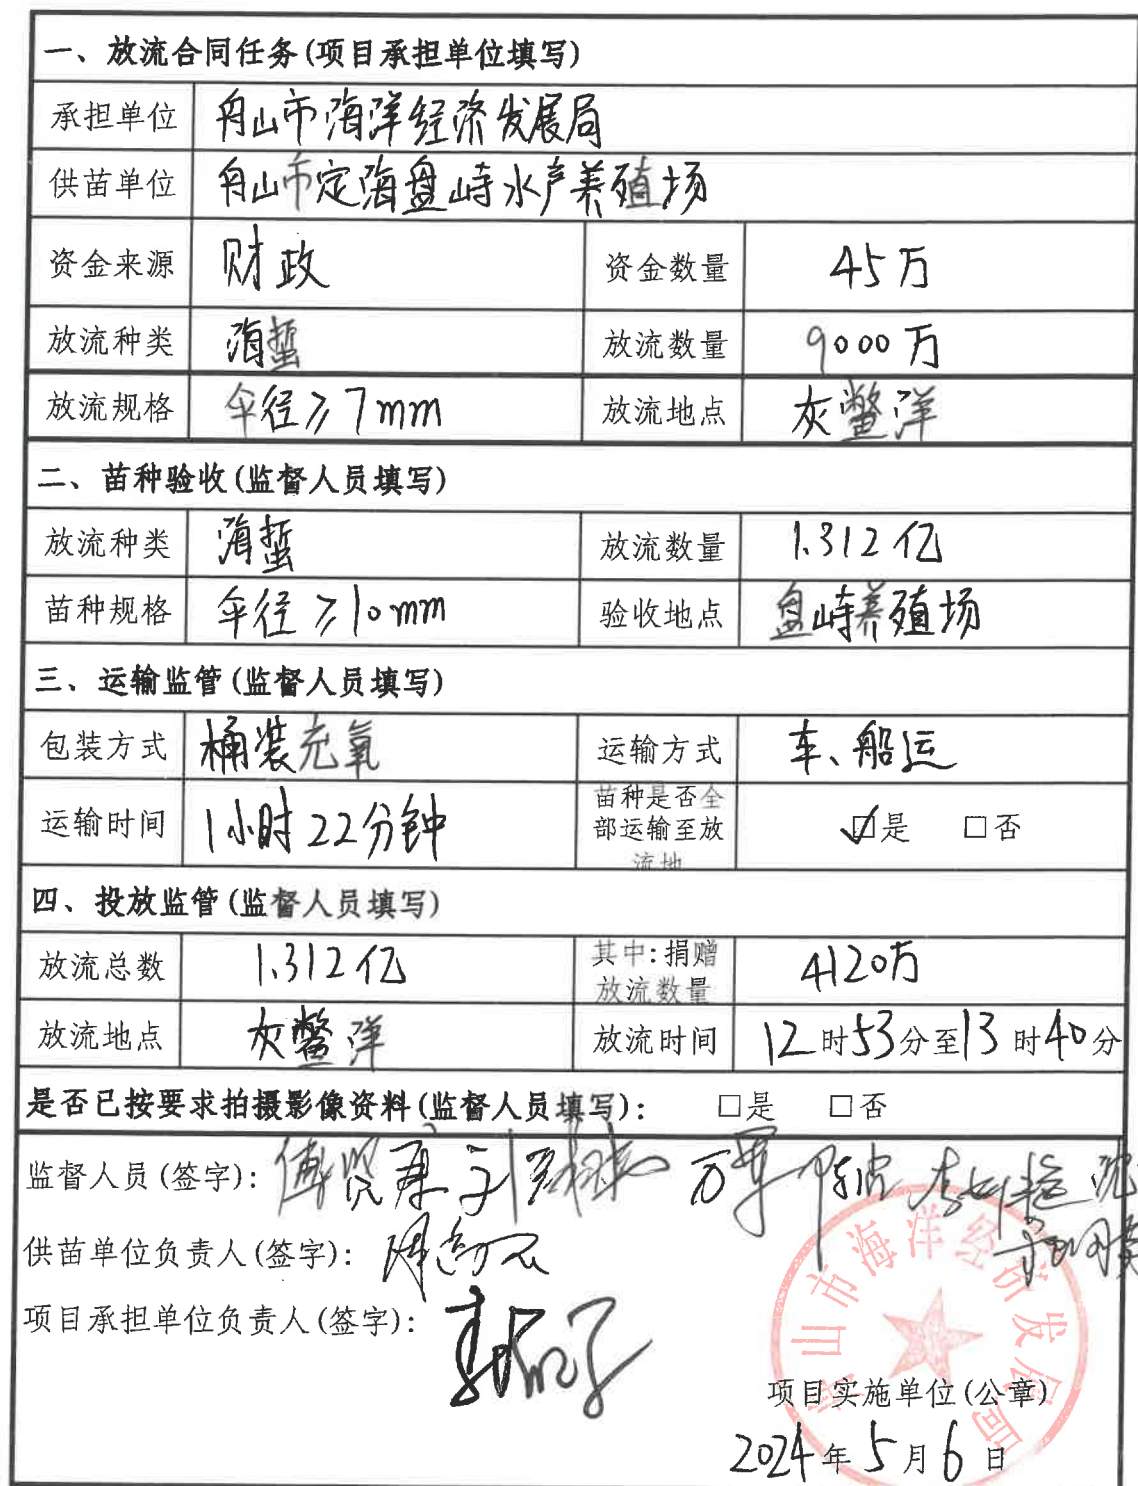 一、放流合同任务(项目承担单位填写)
承担单位 舟山市海洋经济发展局
供苗单位 舟山市定海盘峙水产养殖场
资金来源 财政 资金数量 45万
放流种类 海蜇 放流数量 9000万
放流规格 伞径≥7mm 放流地点 灰鳖洋
二、苗种验收(监督人员填写)
放流种类 海蜇 放流数量 1.312亿
苗种规格 伞径≥10mm 验收地点 盘峙养殖场
三、运输监管(监督人员填写)
包装方式 桶装充氧 运输方式 车、船运
运输时间 1小时22分钟 苗种是否全
部运输至放
流地 ☑是 □否
四、投放监管(监督人员填写)
放流总数 1.312亿 其中:捐赠
放流数量 4120万
放流地点 灰鳖洋 放流时间 12时53分至13时40分
是否已按要求拍摄影像资料(监督人员填写): □是 □否
监督人员(签字):
供苗单位负责人(签字):
项目承担单位负责人(签字):
舟山市海洋经济发展局
项目实施单位(公章)
2024年5月6日